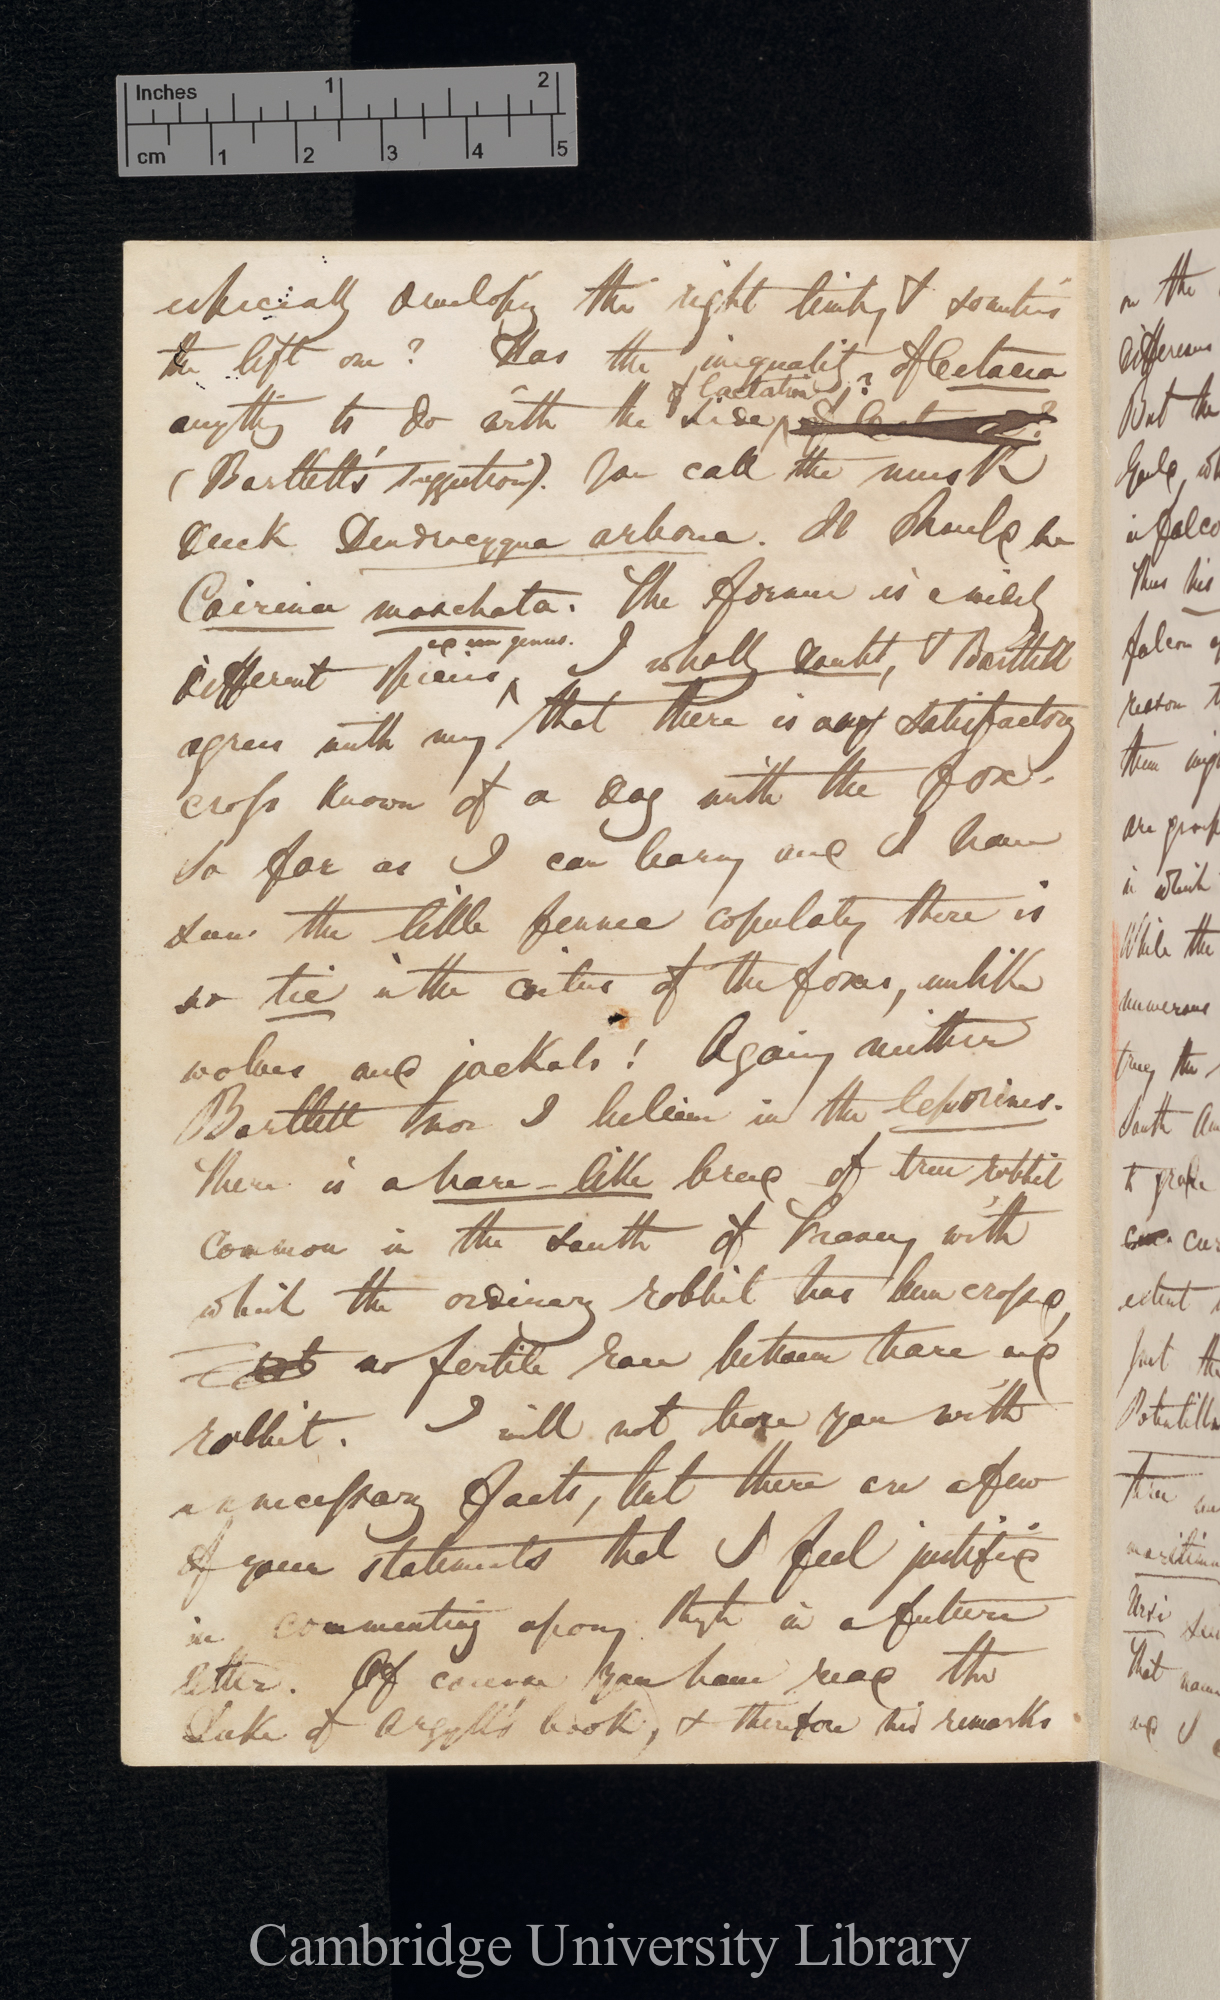 Inches 1 2
cm 1 2 3 4 5
especially developing the right limb, & sometimes
the left one? Has the inequality of Cetacea
anything to do with the side of lactation?
(Bartlett's suggestion). You call the musk
duck Dendrocygna arborea. It should be
Cairina moschata. The former is a widely
different species, ex um genus. I wholly doubt, & Bartlett
agrees with my that there is any satisfactory
cross known of a dog with the fox.
So far as I can learn, and I have
seen the little fennec copulating there is
no tie in the coitus of the foxes, unlike
wolves and jackals! Again, neither
Bartlett nor I believe in the leporines.
There is a hare-like breed of true rabbit
common in the south of France, with
which the ordinary rabbit has been crossed,
but no fertile race between hare and
rabbit. I will not bore you with
unnecessary facts, but there are a few
of your statements that I feel justified
in commenting upon, in a future
letter. Of course you have read the
Duke of Argyll's book, & therefore his remarks
on the
But the
in falco
Thus his
falcon
reason
in which
While the
numerous
South Am
to
extent
just the
Potentilla
maritimus
Ursi
that name
and I
Cambridge University Library